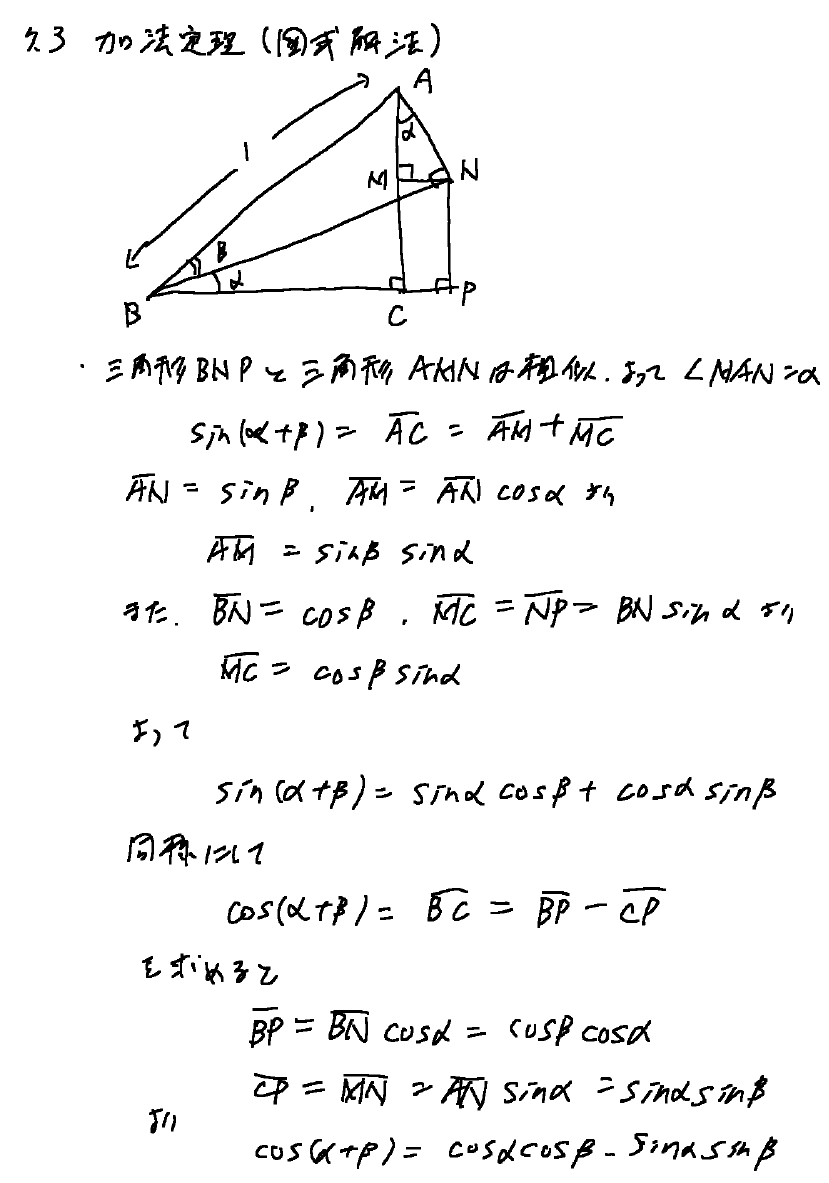 7.3 加法定理(図式解法)
A
α
1
M
N
β
α
B
C
P
・三角形BNPと三角形AMNは相似.よって∠MAN=α
sin(α+β)= A̅C̅ = A̅M̅+M̅C̅
A̅N̅ = sinβ. A̅M̅ = A̅N̅ cosα より
A̅M̅ = sinβ sinα
また. B̅N̅ = cosβ . M̅C̅ = N̅P̅ = BN sinα より
M̅C̅ = cosβ sinα
よって
sin(α+β)= sinα cosβ + cosα sinβ
同様にして
cos(α+β)= B̅C̅ = B̅P̅ - C̅P̅
を求めると
B̅P̅ = B̅N̅ cosα = cosβ cosα
C̅P̅ = M̅N̅ = A̅N̅ sinα = sinα sinβ
より
cos(α+β)= cosαcosβ - sinαsinβ